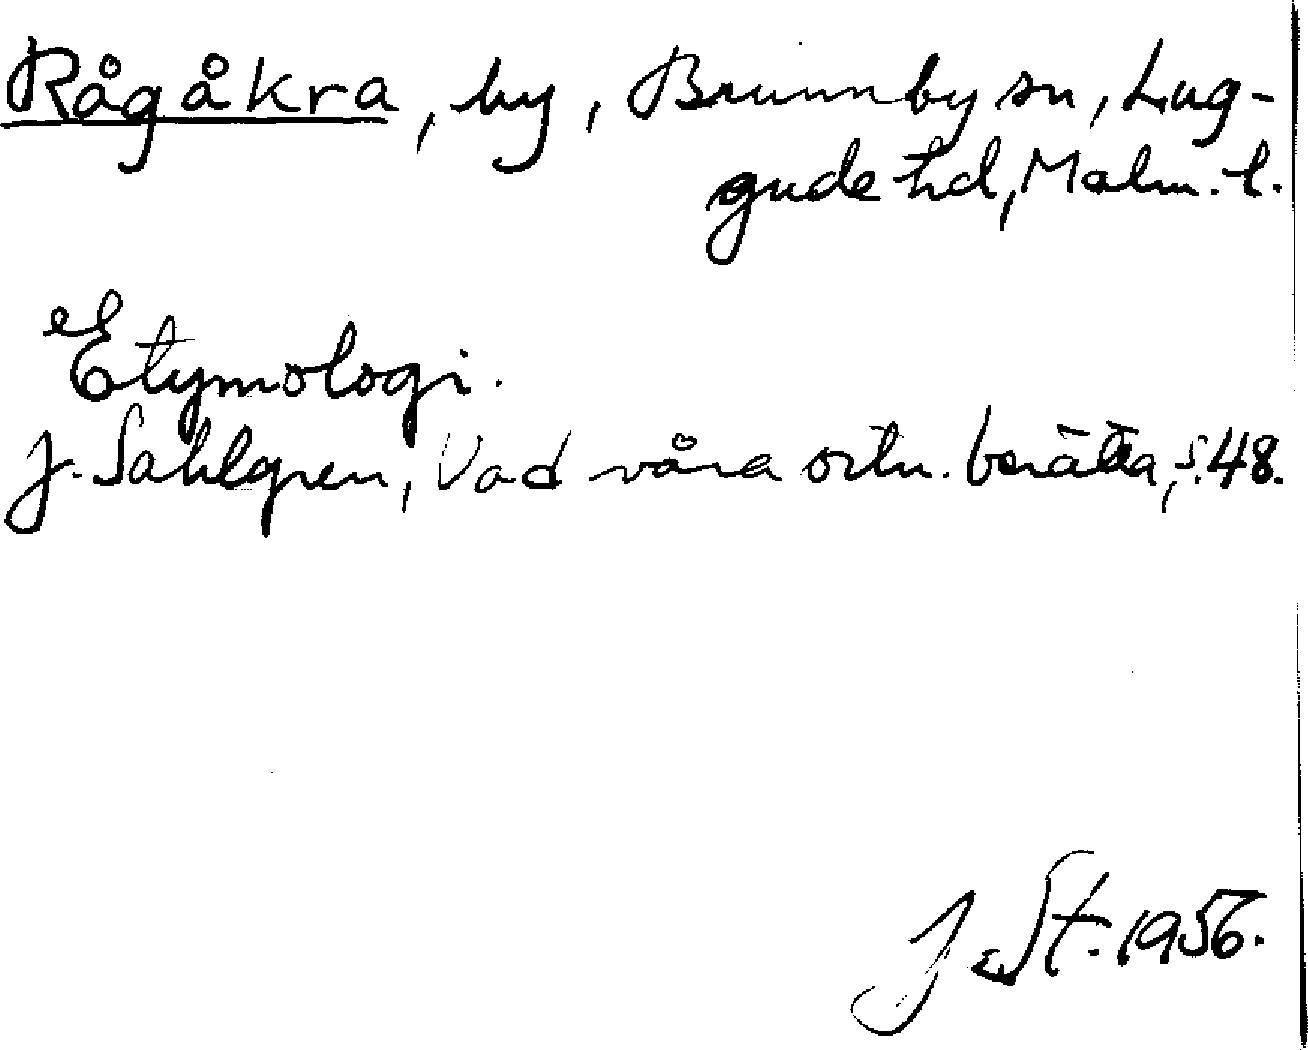 Rågåkra, by, Brunnby sn, Lug-
gude hd, Malm. l.
Etymologi.
J. Sahlgren, Vad våra ortn. berätta, s. 48.
J St. 1956.